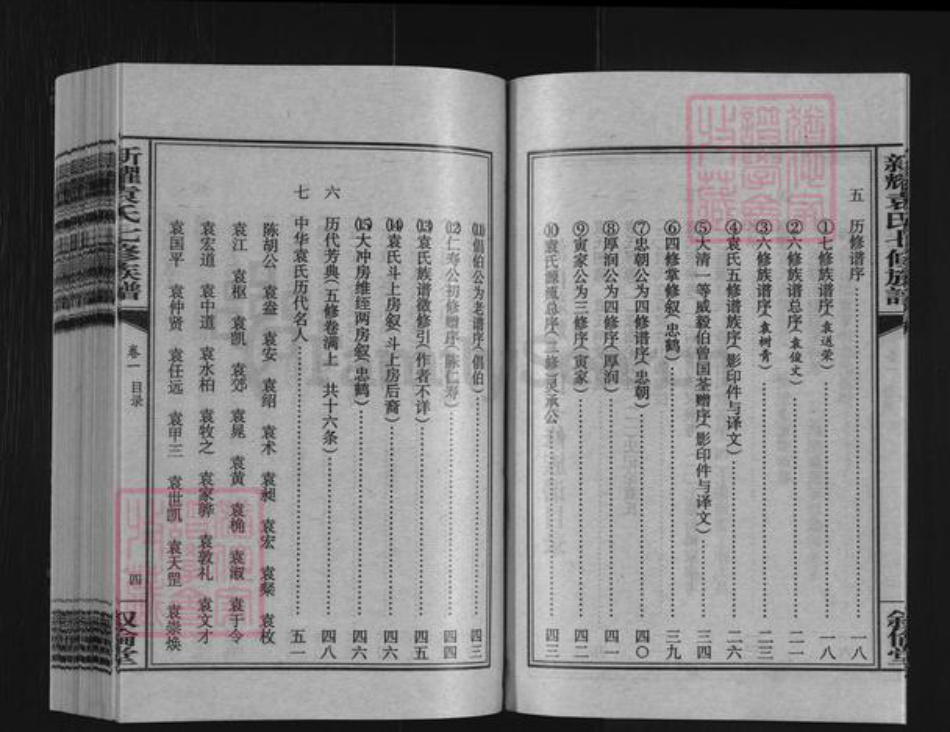 新耀袁氏七修族譜
五 历修谱序 一八
①七修族谱序(袁送荣) 一八
②六修族谱总序(袁俊文) 二一
③六修族谱序(袁树青) 二三
④袁氏五修谱族序(影印件与译文) 二六
⑤大清一等威毅伯曾国荃赠序(影印件与译文) 三四
⑥四修掌修叙(忠鹤) 三九
⑦忠朝公为四修谱序(忠朝) 四〇
⑧厚润公为四修序(厚润) 四一
⑨寅家公为三修序(寅家) 四二
⑩袁氏源流总序(三修)灵承公 四三
⑪倡伯公为老谱序(倡伯) 四三
⑫仁寿公初修赠序(陈仁寿) 四四
⑬袁氏族谱微修引(作者不详) 四五
⑭袁氏斗上房叙(斗上房后裔) 四六
⑮大冲房维绖两房叙(忠鹤) 四六
六 历代芳典(五修卷满上 共十六条) 四八
七 中华袁氏历代名人 五一
陈胡公 袁盎 袁安 袁绍 袁术 袁昶 袁宏 袁粲 袁枚
袁江 袁枢 袁凯 袁郊 袁晁 袁黄 袁桷 袁淑 袁于令
袁宏道 袁中道 袁水柏 袁牧之 袁家骅 袁敦礼 袁文才
袁国平 袁仲贤 袁任远 袁甲三 袁世凯 袁天罡 袁崇焕
新耀袁氏七修族譜
卷一 目录
四
叙倫堂